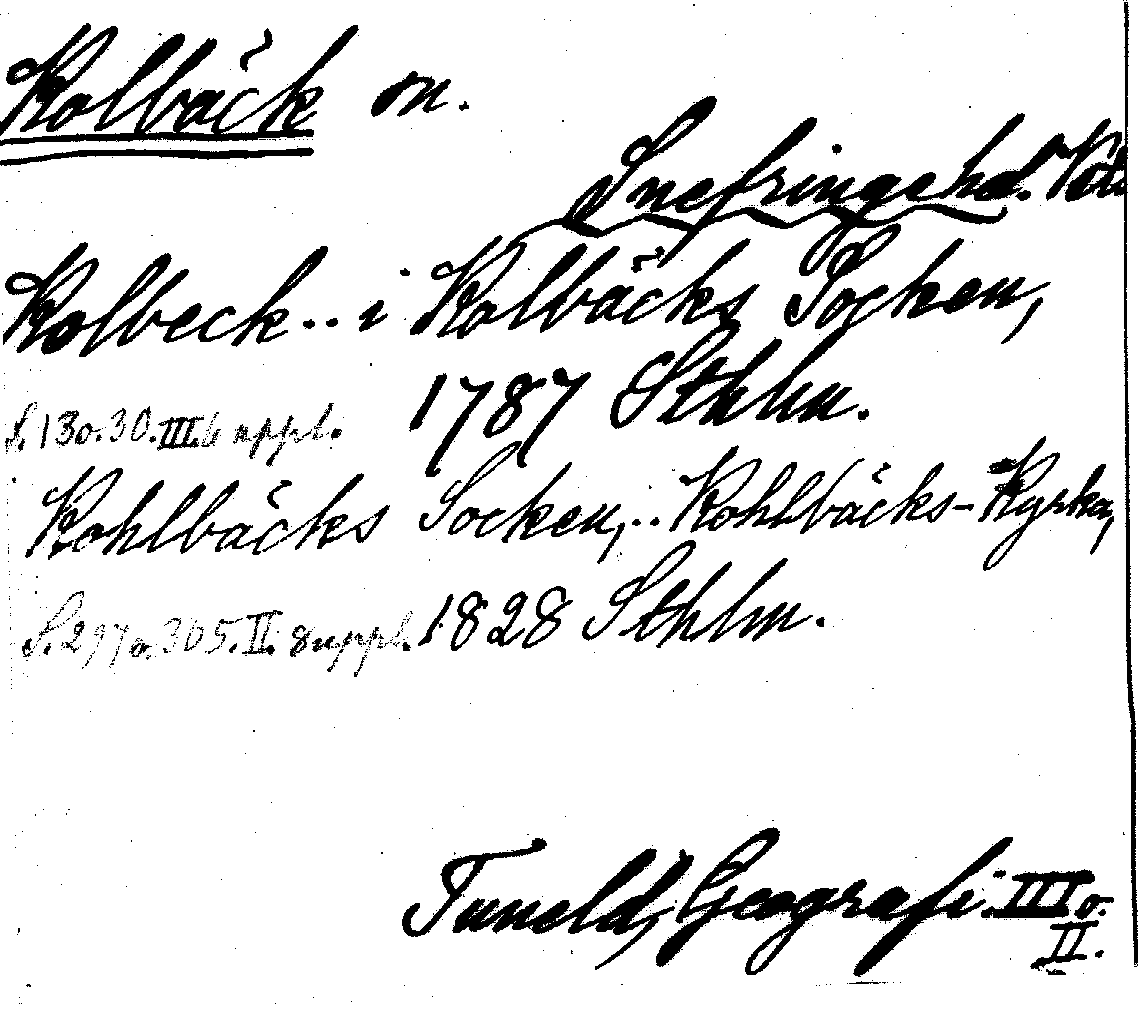 Kolbäck on.
Snefringehd. Vstm
Kolbeck... i Kolbäcks Socken,
1787 Sthlm.
S. 13 o. 30. III. 6 uppl.
Kohlbäcks Socken,... Kohlbäcks-Kyrka,
S. 297 o. 305. II. 8 uppl. 1828 Sthlm.
Tuneld, Geografi. III o.
II.